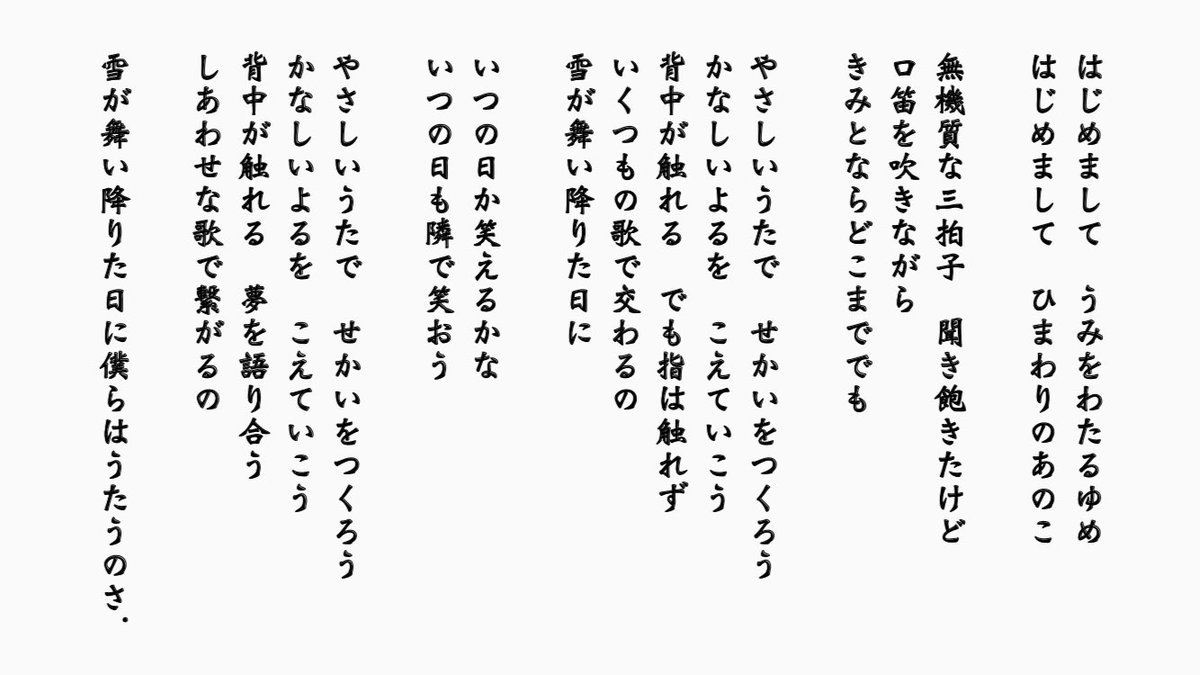 はじめまして　うみをわたるゆめ
はじめまして　ひまわりのあのこ
無機質な三拍子　聞き飽きたけど
口笛を吹きながら
きみとならどこまででも
やさしいうたで　せかいをつくろう
かなしいよるを　こえていこう
背中が触れる　でも指は触れず
いくつもの歌で交わるの
雪が舞い降りた日に
いつの日か笑えるかな
いつの日も隣で笑おう
やさしいうたで　せかいをつくろう
かなしいよるを　こえていこう
背中が触れる　夢を語り合う
しあわせな歌で繋がるの
雪が舞い降りた日に僕らはうたうのさ.